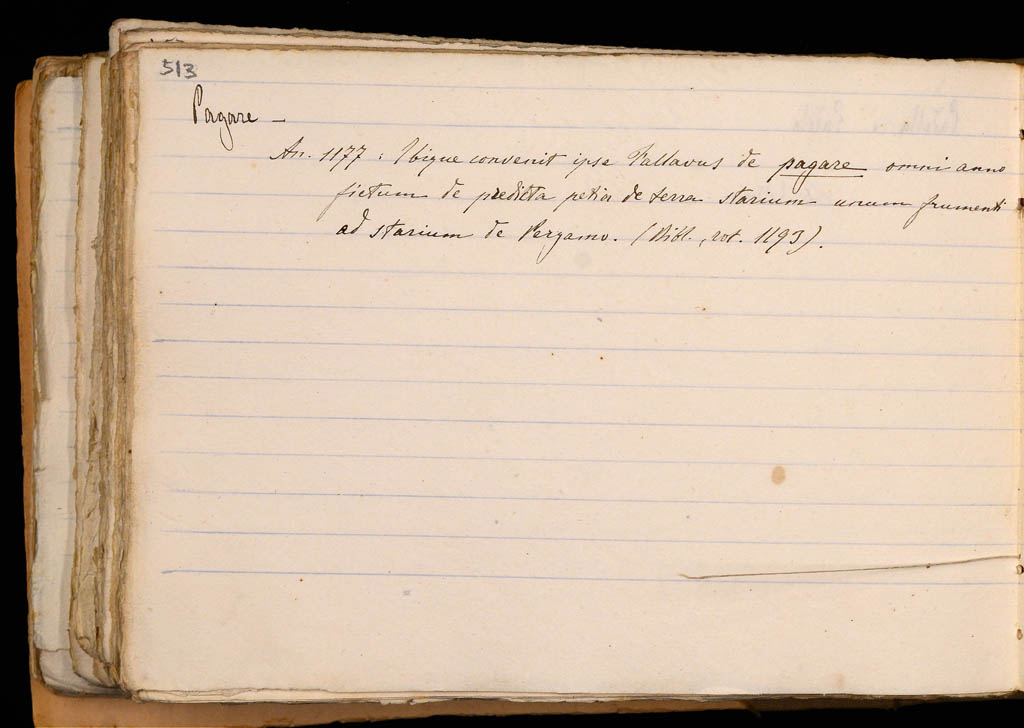 513
Pagare —
An. 1177 : Ibique convenit ipse Vallavus de pagare omni anno
fictum de predicta petia de terra starium unum frumenti
ad starium de Pergamo. (Bibl., rot. 1193).